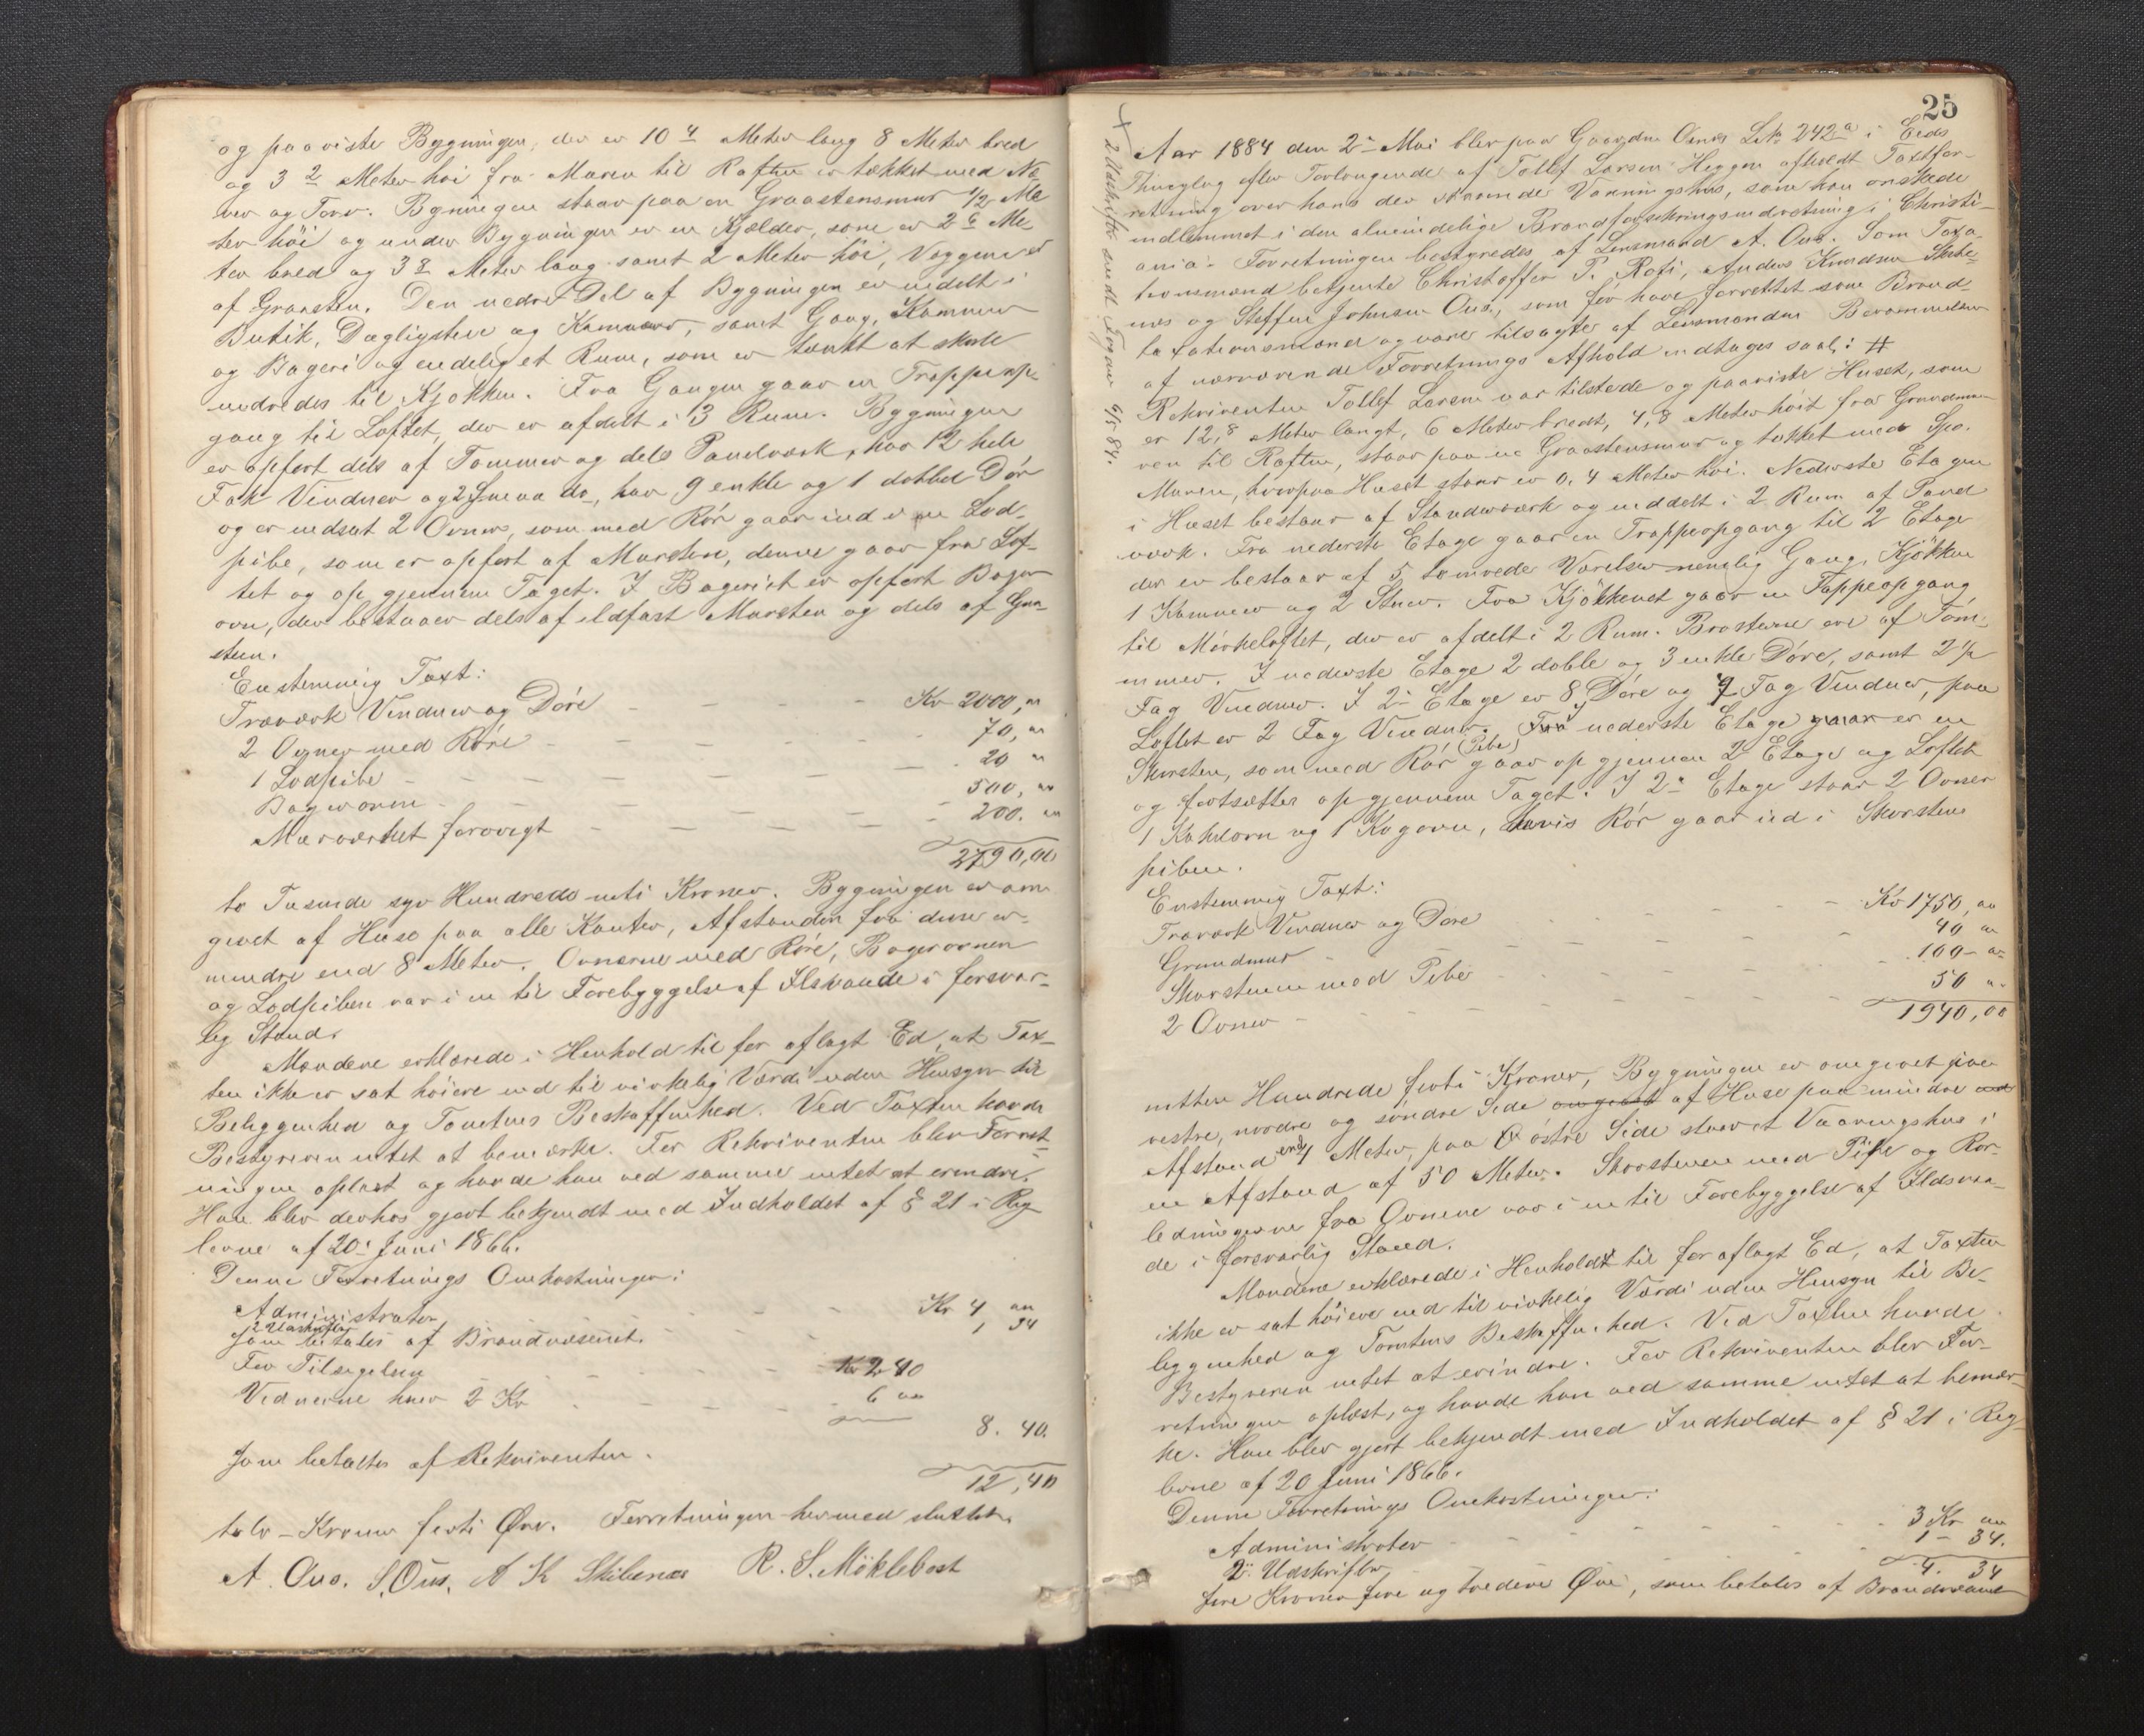 og paaviste Bygningen, der er 10 4 Meter lang 8 Meter bred
og 3 2 Meter høi fra Muren til Raften er tækket med Næ
ver og Torv. Bygningen staar paa en Graastensmur 1/2 Me
ter höi og under Bygningen er en Kjælder, som er 2 6 Me-
ter bred og 3 8 Meter lang samt 2 Meter höi, Væggene er
af Graasten. Den nedre Del af Bygningen er inddelt i
Butik, Dagligstue og Kammers, samt Gang, Kammer
og Bageri og endelig et Rum, som er tænkt at skulle
indredes til Kjøkken. Fra Gangen gaar en Trappeop-
gang til Loftet, der er afdelt i 3 Rum. Bygningen
er opført dels af Tømmer og dels Bindværk, har 12 hele
Fak Vinduer og 2 smaa do, har 9 enkle og 1 dobbel Dør
og er indsat 2 Ovner, som med Rör gaar ind i en Lod-
pibe, som er opført af Mursten, denne gaar fra Lof-
tet og op gjennem Taget. I Bageriet er opført Bager
ovn, der bestaaer dels af ildfast Mursten og dels af Graa-
sten.
Enstemmig Taxt:
Træværk Vinduer og Døre - - - Kr 2000, "
2 Ovner med Röre - - - 70, "
1 Lodpibe - - - 20 "
Bagerovn - - - 500, "
Murværket forøvrigt - - - 200. "
2790,00
to Tusinde syv Hundrede nitti Kroner. Bygningen er om
givet af Huse paa alle Kanter, Afstanden fra disse er
mindre end 8 Meter. Ovnerne med Röre, Bagerovnen
og Lodpiben var i en til Forebyggelse af Ildsvaade i forsvar-
lig Stand.
Mændene erklærede i Henhold til før aflagt Ed, at Tax-
ten ikke er sat høiere end til virkelig Værdi uden Hensyn til
Beliggenhed og Tomtens Beskaffenhed. Ved Taxten havde
Bestyreren intet at bemærke. For Rekvirenten blev Forret-
ningen oplæst og havde han ved samme intet at erindre.
Han blev derhos gjort bekjendt med Indholdet af § 21 i Reg
lerne af 20: Juni 1866.
Denne Forretnings Omkostninger:
Administrator - - - Kr 4 "
2 Udskrifter - - - 1 34
som betales af Brandvæsenet.
For Tilsigelsen - - - Kr 2 40
Vidnerne hver 2 Kr - - - 6 "
8. 40.
som betaltes af Rekvirenten.
12,40
tolv Kroner førti Øre. Forretningen hermed sluttet.
A. Ous. S. Ous. A K Skibenes R. S. Möklebost
25
+ 2 Udskrifter sendt Fogden 6/5 84.
Aar 1884 den 2- Mai blev paa Gaarden Osnes Lk 242 a i Eids
Thinglag efter Forlangende af Tollef Larsen Heggen afholdt Taxtfor-
retning over hans der værende Vaaningshus, som han ønskede
indlemmet i den almindelige Brandforsikringsindretning i Christi-
ania. Forretningen bestyredes af Lensmand A. Ous. Som Taxa-
tionsmænd betjente Christoffer P. Rafi, Anders Knudsen Skibe-
nes og Steffen Johnsen Ous, som før have forrettet som Brand-
taxationsmænd og vare tilsagte af Lensmanden Berammelsen
af nærværende Forretnings Afhold indtages saal: #
Rekvirenten Tollef Larsen var tilstede og paaviste Huset, som
er 12,8 Meter langt, 6 Meter bredt, 4,8 Meter höit fra Grundmu-
ren til Raften, staar paa en Graastensmur og tækket med Spo.
Muren, hvorpaa Huset staar er 0,4 Meter höi. Nederste Etagen
i Huset bestaar af Standerværk og inddelt i 2 Rum af Pand
værk. Fra nederste Etage gaar en Trappeopgang til 2 Etage
der er bestaar af 5 tømrede Værelser nemlig Gang, Kjökken
1 Kammer og 2 Stuer. Fra Kjökkenet gaar en Tappeopgang
til Mörkeloftet, der er afdelt i 2 Rum. Brøsterne ere af Töm-
mer. I nederste Etage 2 doble og 3 enkle Döre, samt 2 1/2
Fag Vinduer. I 2- Etage er 8 Döre og 9 Fag Vinduer, paa
Loftet er 2 Fag Vinduer. I nederste Etage er en
Skorsten, som med Rör (Pibe) gaar op gjennem 2 Etage og Loftet
og fortsætter op gjennem Taget. I 2- Etage staar 2 Ovner
1 Kakelovn og 1 Kogeovn, hvis Rör gaar ind i Skorstens
piben.
Enstemmig Taxt:
Træværk Vinduer og Döre - - - Kr 1750, "
Grundmur - - - 40 "
Skorstenen med Pibe - - - 100 - "
2 Ovner - - - 50 "
1940,00
nitten Hundrede førti Kroner, Bygningen er omgivet paa
vestre, nordre og söndre Side omgivet af Huse paa mindre end
Afstand end 4 Meter, paa østre Side staar et Vaaningshus i
en Afstand af 50 Meter. Skorstenen med Pibe og Rør-
ledningerne fra Ovnene var i en til Forebyggelse af Ildsvaa-
de i forsvarlig Stand.
Mændene erklærede i Henhold til før aflagt Ed, at Taxten
ikke er sat höiere end til virkelig Værdi uden Hensyn til Be-
liggenhed og Tomtens Beskaffenhed. Ved Taxten havde
Bestyreren intet at erindre. For Rekvirenten blev For-
retningen oplæst, og havde han ved samme intet at bemær-
ke. Han blev gjort bekjendt med Indholdet af § 21 i Reg-
lerne af 20 Juni 1866.
Denne Forretnings Omkostninger:
Administrator - - - 3 Kr "
2 Udskrifter - - - 1 - 34.
4. 34
fire Kroner fire og tredeve Øre, som betales af Brandvæsenet